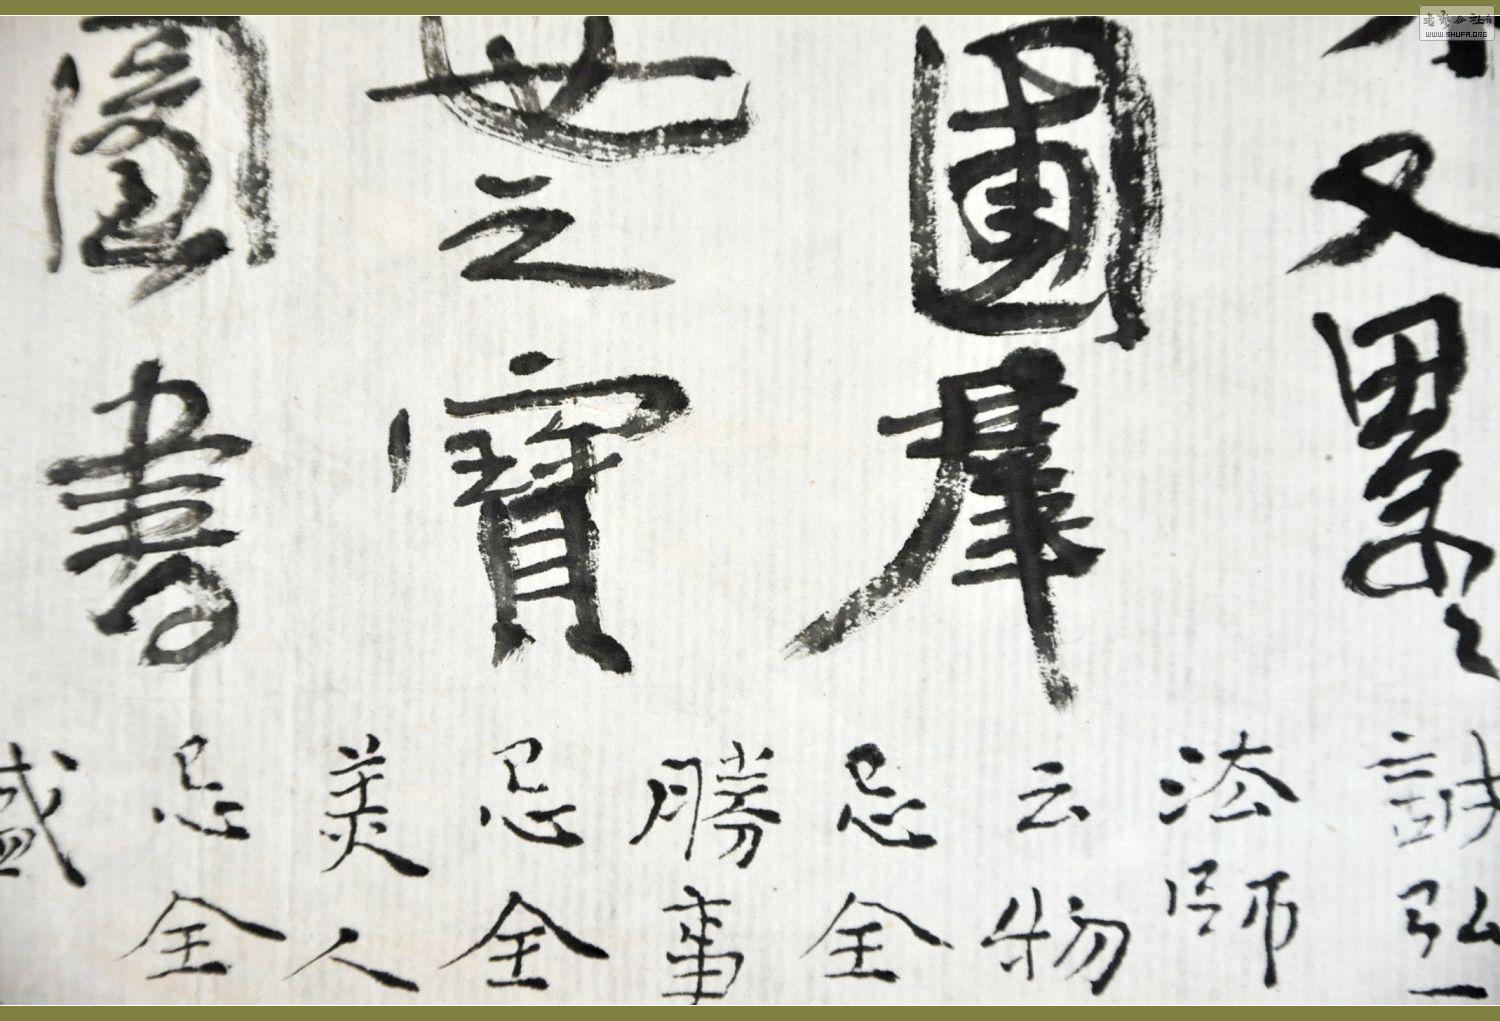 又累
圃群
世之寶
圖書
誠弘一
法師
云物
忌全
勝事
忌全
美人
忌全
盛
書法公社
WWW.SHUFA.ORG